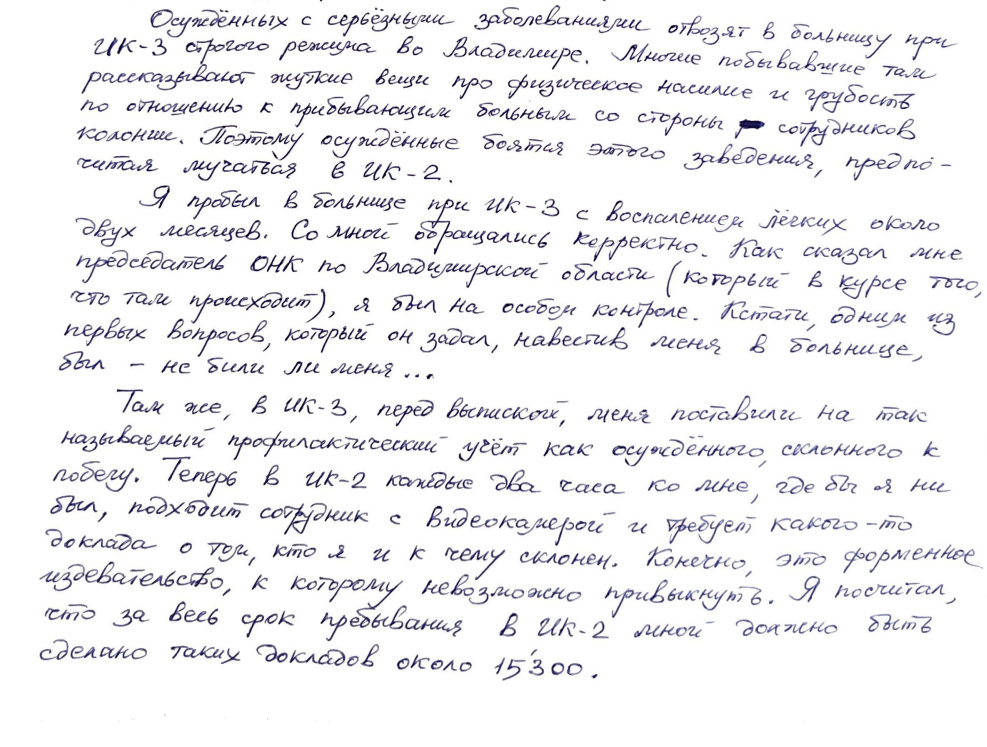 Осуждённых с серьёзными заболеваниями отвозят в больницу при
ИК-3 строгого режима во Владимире. Многие побывавшие там
рассказывают жуткие вещи про физическое насилие и грубость
по отношению к прибывающим больным со стороны сотрудников
колонии. Поэтому осуждённые боятся этого заведения, предпо-
читая мучаться в ИК-2.
Я пробыл в больнице при ИК-3 с воспалением лёгких около
двух месяцев. Со мной обращались корректно. Как сказал мне
председатель ОНК по Владимирской области (который в курсе того,
что там происходит), я был на особом контроле. Кстати, одним из
первых вопросов, который он задал, навестив меня в больнице,
был – не били ли меня...
Там же, в ИК-3, перед выпиской, меня поставили на так
называемый профилактический учёт как осуждённого, склонного к
побегу. Теперь в ИК-2 каждые два часа ко мне, где бы я ни
был, подходит сотрудник с видеокамерой и требует какого-то
доклада о том, кто я и к чему склонен. Конечно, это форменное
издевательство, к которому невозможно привыкнуть. Я посчитал,
что за весь срок пребывания в ИК-2 мной должно быть
сделано таких докладов около 15'300.